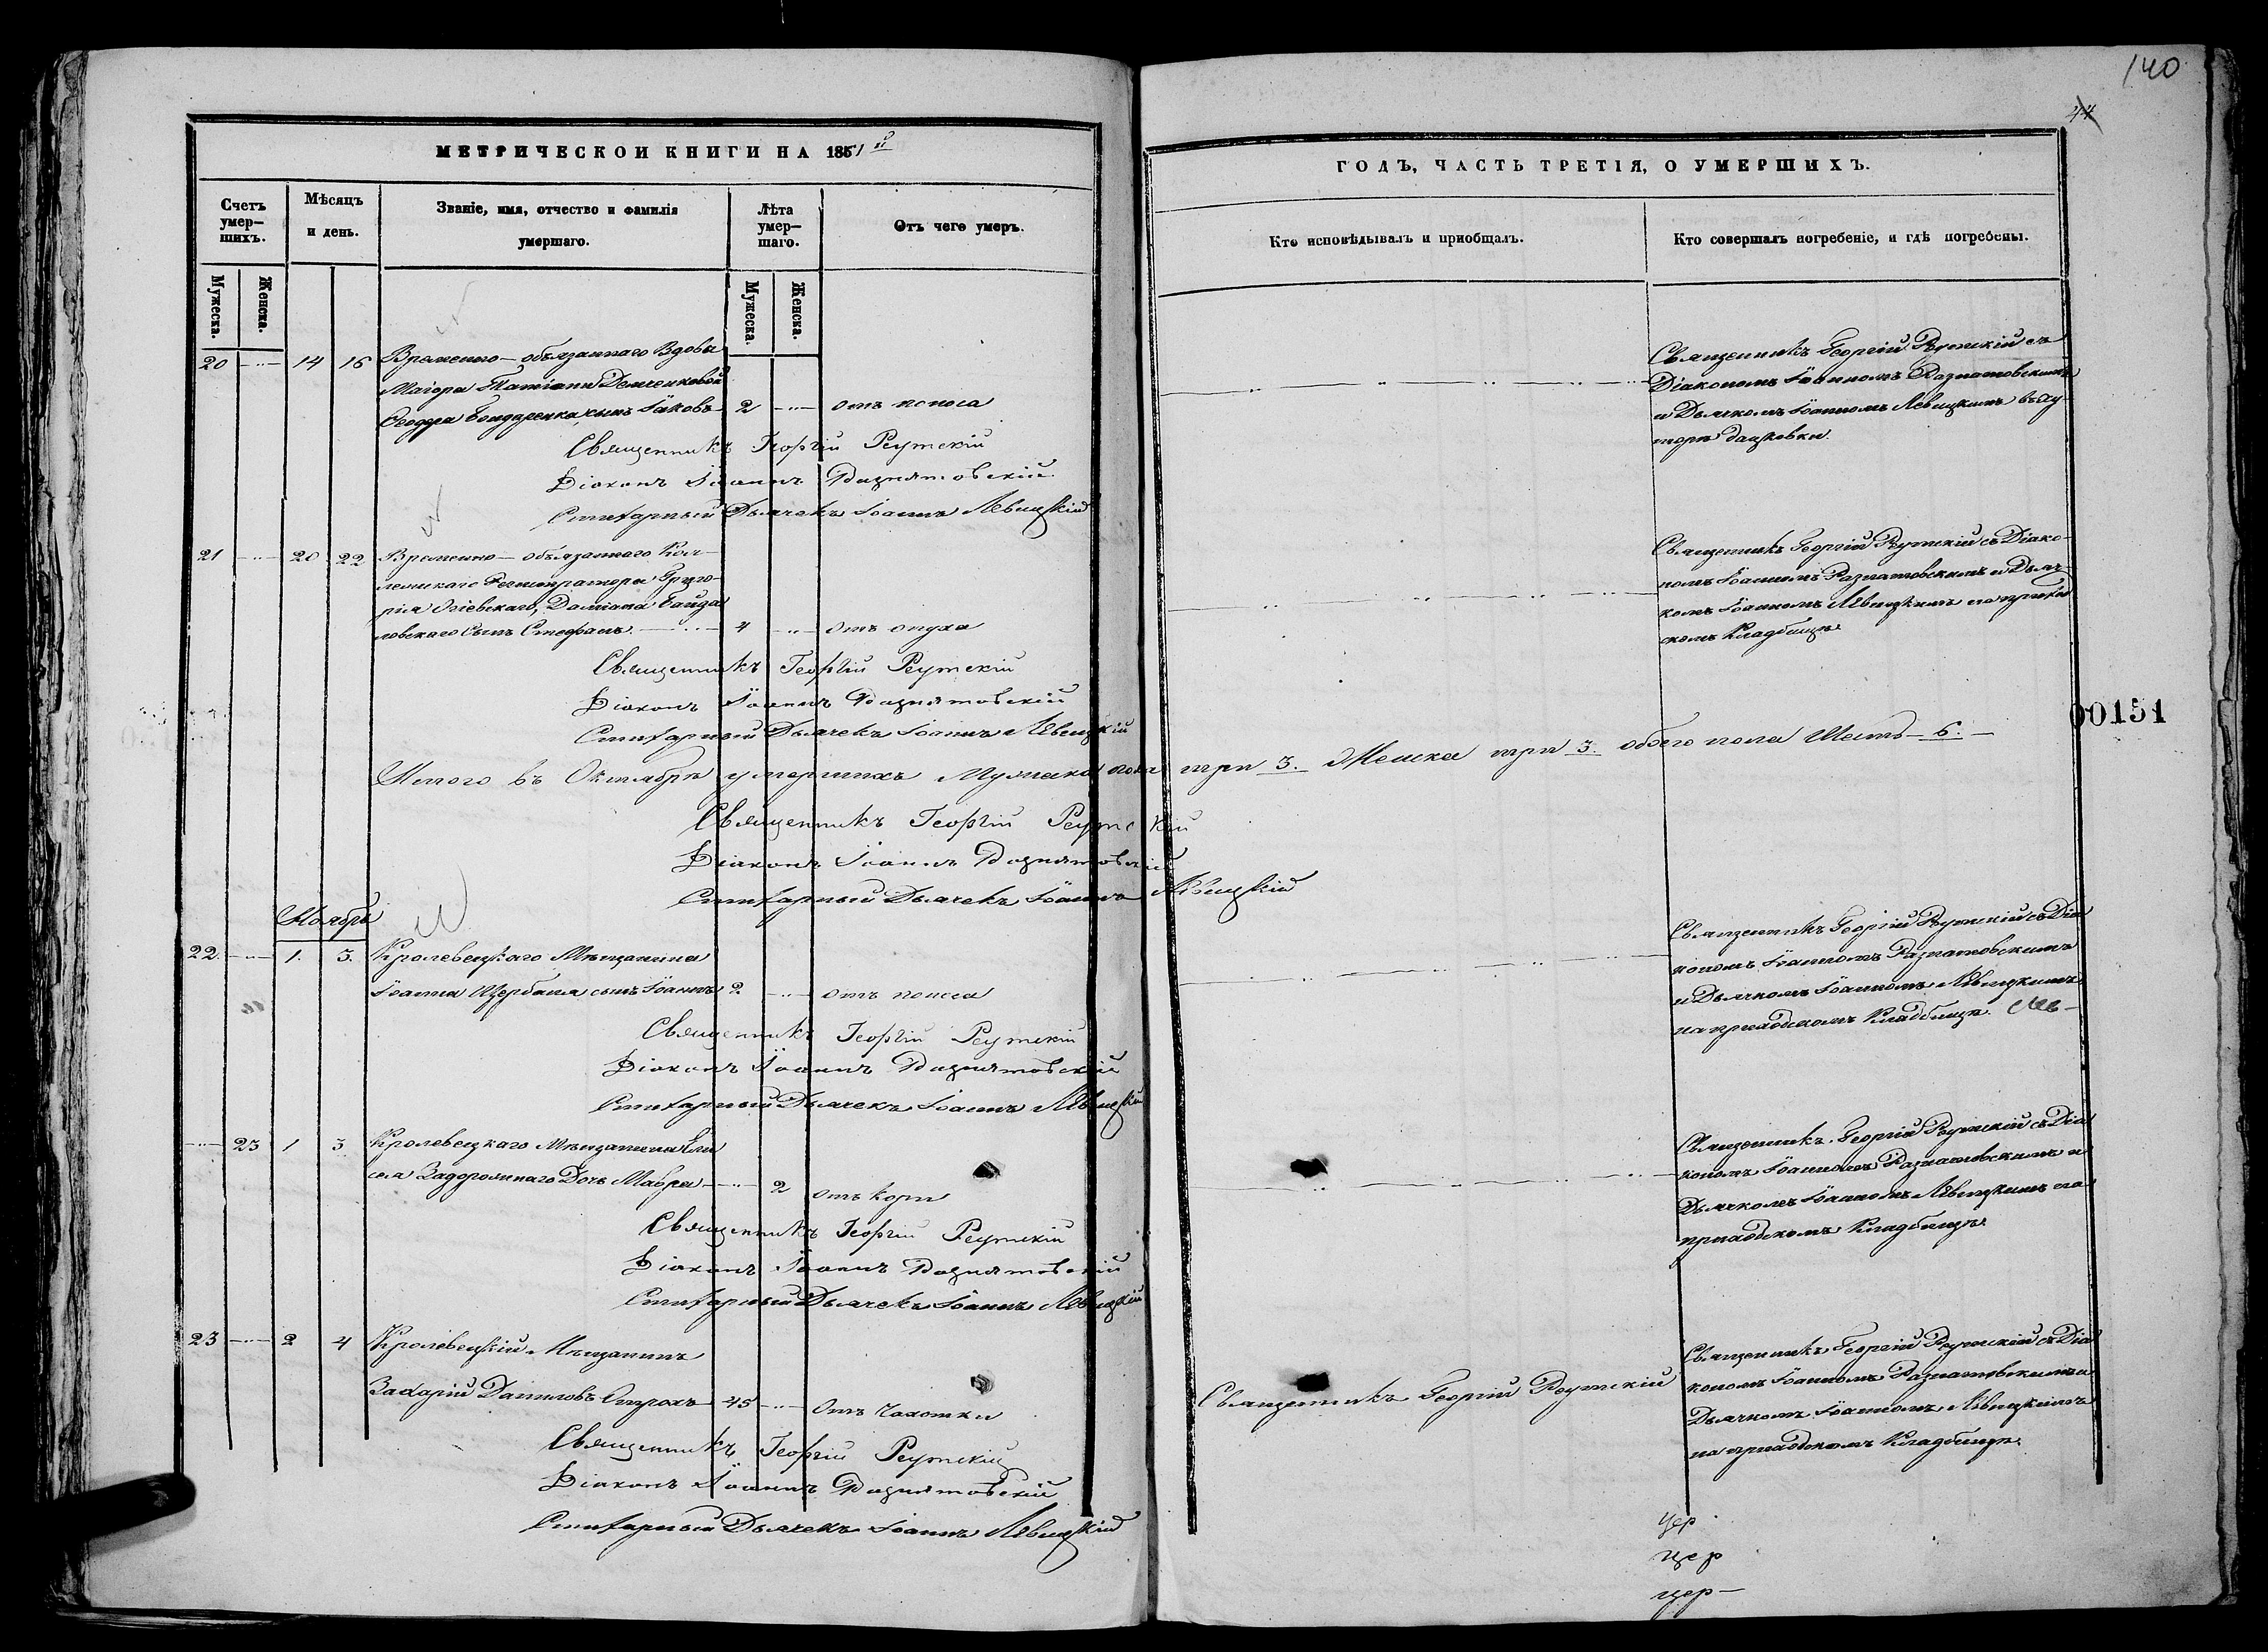 140
44
МЕТРИЧЕСКОИ КНИГИ НА 1861й
ГОДЪ, ЧАСТЬ ТРЕТІЯ, О УМЕРШИХЪ.
Счетъ умер-шихъ.
Мѣсяцъ и день.
Званіе, имя, отчество и фамилія умершаго.
Лѣта умер-шаго.
Отъ чего умеръ.
Кто исповѣдывалъ и приобщалъ.
Кто совершалъ погребеніе, и гдѣ погребены.
Мужеска.
Женска.
Мужеска.
Женска.
20 14 16 Временно-обязаннаго Вдовы
Маіора Татіаны Деменковой
Феодора Бондаренка, сынъ Іаковъ 2 отъ поноса
Священникъ Георгій Реутскій съ
Діакономъ Іоанномъ Разнатовскимъ
и Дьячкомъ Іоанномъ Левицкимъ въ ху-
торѣ
Священникъ Георгій Реутскій
Діаконъ Іоаннъ Разнатовскій
Стихарный Дьячекъ Іоаннъ Левицкій
21 20 22 Временно-обязаннаго Кол-
лежскаго Регистратора Григо-
рія Огіевскаго, Даміана
сынъ Стефанъ 4 отъ опуха
Священникъ Георгій Реутскій съ Діако-
номъ Іоанномъ Разнатовскимъ и Дьяч-
комъ Іоанномъ Левицкимъ на приход-
скомъ Кладбищѣ.
Священникъ Георгій Реутскій
Діаконъ Іоаннъ Разнатовскій
Стихарный Дьячекъ Іоаннъ Левицкій
00151
Итого въ Октябрѣ умершихъ Мужеска пола три 3. Женска три 3. обоего пола Шесть 6.
Священникъ Георгій Реутскій
Діаконъ Іоаннъ Разнатовскій
Стихарный Дьячекъ Іоаннъ Левицкій
Ноябрь
22. 1. 3. Кролевецкаго Мѣщанина
Іоанна Щербаня сынъ Іоаннъ 2 отъ поноса
Священникъ Георгій Реутскій съ Діа
кономъ Іоанномъ Разнатовскимъ
и Дьячкомъ Іоанномъ Левицкимъ
на приходскомъ Кладбищѣ.
Священникъ Георгій Реутскій
Діаконъ Іоаннъ Разнатовскій
Стихарный Дьячекъ Іоаннъ Левицкій
23 1 3 Кролевецкаго Мѣщанина Ели
сея Задорожнаго Дочь Мавра 2 отъ кори
Священникъ Георгій Реутскій съ Діа
кономъ Іоанномъ Разнатовскимъ и
Дьячкомъ Іоанномъ Левицкимъ на
приходскомъ Кладбищѣ.
Священникъ Георгій Реутскій
Діаконъ Іоаннъ Разнатовскій
Стихарный Дьячекъ Іоаннъ Левицкій
23 2 4 Кролевецкій Мѣщанинъ
Захарій Даниловъ 45 отъ Чахотки
Священникъ Георгій Реутскій
Священникъ Георгій Реутскій съ Діа
кономъ Іоанномъ Разнатовскимъ и
Дьячкомъ Іоанномъ Левицкимъ
на приходскомъ Кладбищѣ.
Священникъ Георгій Реутскій
Діаконъ Іоаннъ Разнатовскій
Стихарный Дьячекъ Іоаннъ Левицкій
цер
цер
цер